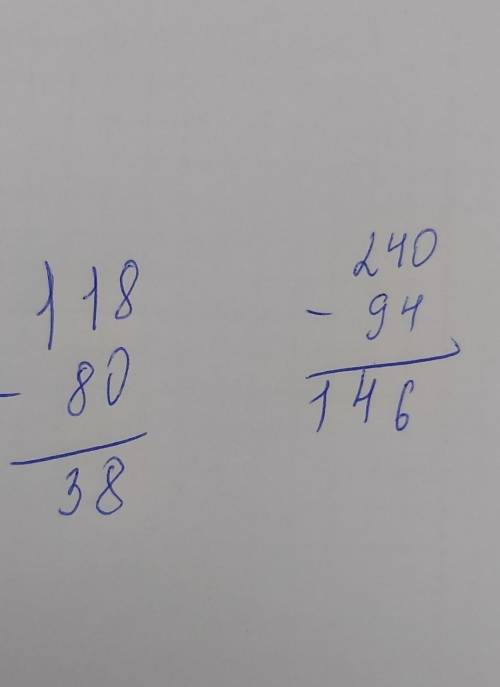 118
- 80
38
240
- 94
146